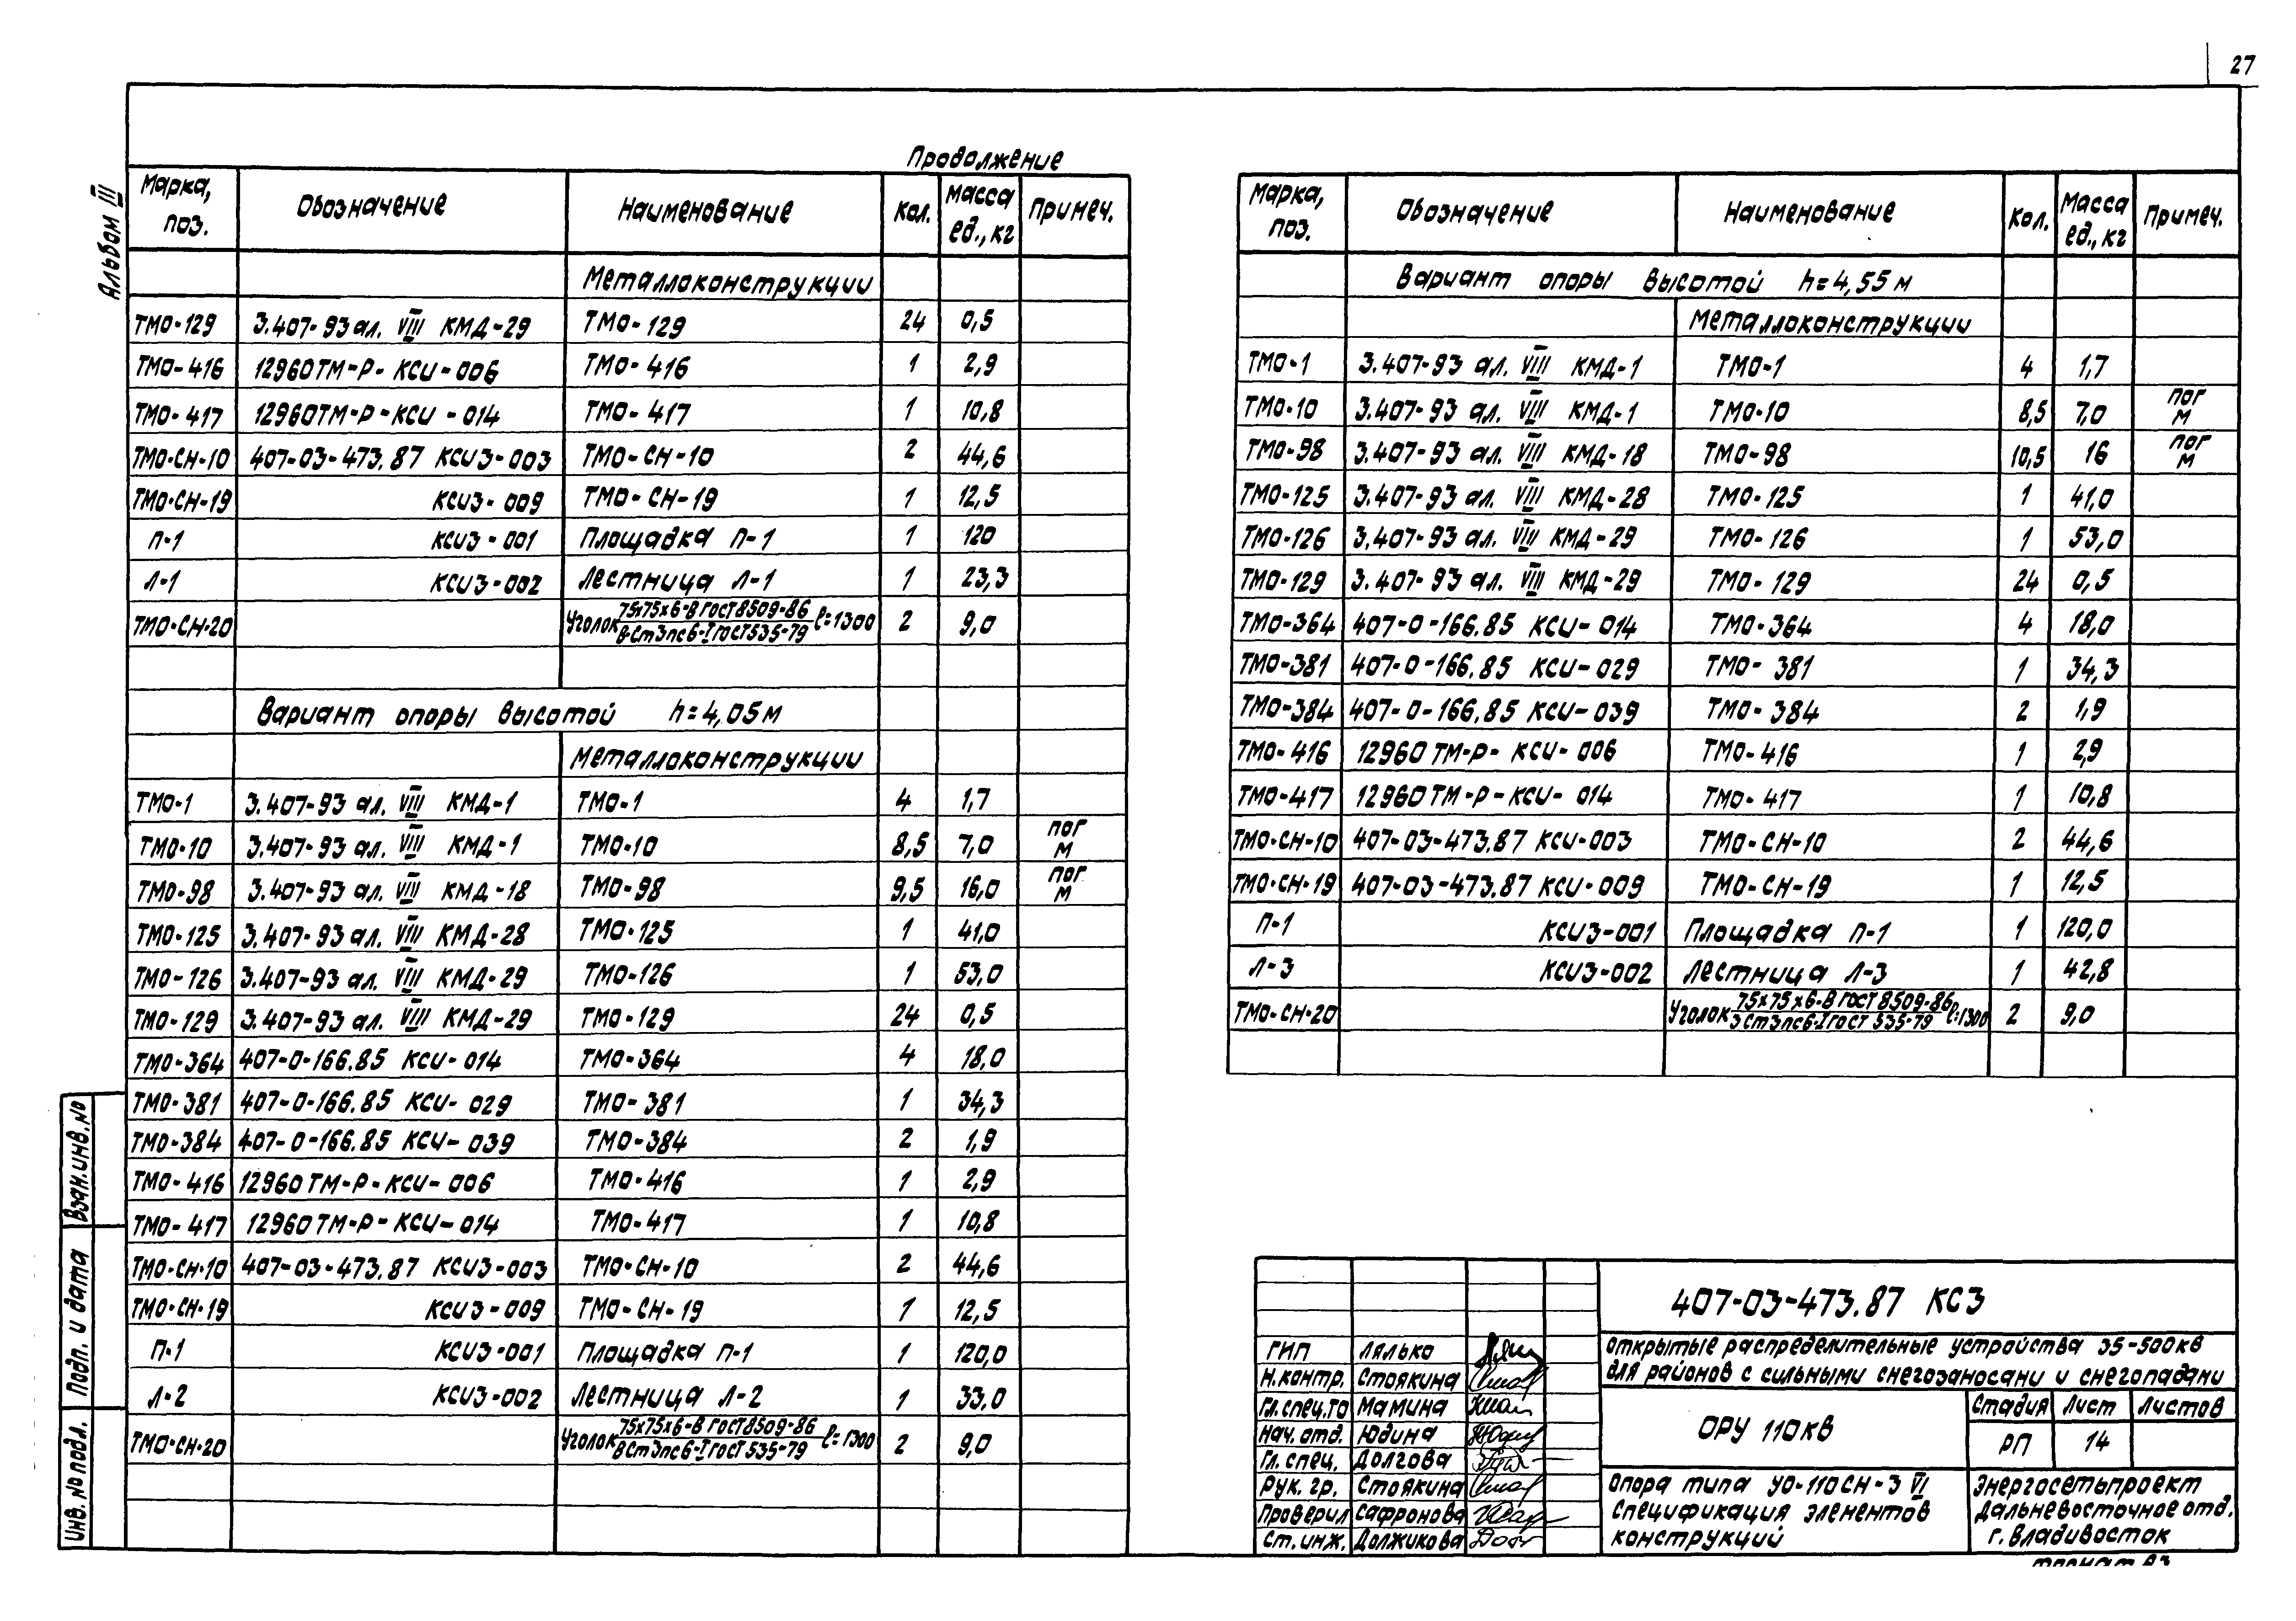 27
Альбом III
Продолжение
Марка, поз. Обозначение Наименование Кол. Масса ед., кг Примеч.
Металлоконструкции
ТМО-129 3.407-93 ал. VIII КМД-29 ТМО-129 24 0,5
ТМО-416 12960ТМ-Р-КСИ-006 ТМО-416 1 2,9
ТМО-417 12960ТМ-Р-КСИ-014 ТМО-417 1 10,8
ТМО-СН-10 407-03-473.87 КСИЗ-003 ТМО-СН-10 2 44,6
ТМО-СН-19 КСИЗ-009 ТМО-СН-19 1 12,5
П-1 КСИЗ-001 Площадка П-1 1 120
Л-1 КСИЗ-002 Лестница Л-1 1 23,3
ТМО-СН-20 Уголок 75х75х6-В ГОСТ 8509-86 / ВСт3пс6-I ГОСТ 535-79 ℓ=1300 2 9,0
Вариант опоры высотой h=4,05м
Металлоконструкции
ТМО-1 3.407-93 ал. VIII КМД-1 ТМО-1 4 1,7
ТМО-10 3.407-93 ал. VIII КМД-1 ТМО-10 8,5 7,0 пог м
ТМО-98 3.407-93 ал. VIII КМД-18 ТМО-98 9,5 16,0 пог м
ТМО-125 3.407-93 ал. VIII КМД-28 ТМО-125 1 41,0
ТМО-126 3.407-93 ал. VIII КМД-29 ТМО-126 1 53,0
ТМО-129 3.407-93 ал. VIII КМД-29 ТМО-129 24 0,5
ТМО-364 407-0-166.85 КСИ-014 ТМО-364 4 18,0
ТМО-381 407-0-166.85 КСИ-029 ТМО-381 1 34,3
ТМО-384 407-0-166.85 КСИ-039 ТМО-384 2 1,9
ТМО-416 12960ТМ-Р-КСИ-006 ТМО-416 1 2,9
ТМО-417 12960ТМ-Р-КСИ-014 ТМО-417 1 10,8
ТМО-СН-10 407-03-473.87 КСИЗ-003 ТМО-СН-10 2 44,6
ТМО-СН-19 КСИЗ-009 ТМО-СН-19 1 12,5
П-1 КСИЗ-001 Площадка П-1 1 120,0
Л-2 КСИЗ-002 Лестница Л-2 1 33,0
ТМО-СН-20 Уголок 75х75х6-В ГОСТ 8509-86 / ВСт3пс6-I ГОСТ 535-79 ℓ=1300 2 9,0
Марка, поз. Обозначение Наименование Кол. Масса ед., кг Примеч.
Вариант опоры высотой h=4,55м
Металлоконструкции
ТМО-1 3.407-93 ал. VIII КМД-1 ТМО-1 4 1,7
ТМО-10 3.407-93 ал. VIII КМД-1 ТМО-10 8,5 7,0 пог м
ТМО-98 3.407-93 ал. VIII КМД-18 ТМО-98 10,5 16 пог м
ТМО-125 3.407-93 ал. VIII КМД-28 ТМО-125 1 41,0
ТМО-126 3.407-93 ал. VIII КМД-29 ТМО-126 1 53,0
ТМО-129 3.407-93 ал. VIII КМД-29 ТМО-129 24 0,5
ТМО-364 407-0-166.85 КСИ-014 ТМО-364 4 18,0
ТМО-381 407-0-166.85 КСИ-029 ТМО-381 1 34,3
ТМО-384 407-0-166.85 КСИ-039 ТМО-384 2 1,9
ТМО-416 12960ТМ-Р-КСИ-006 ТМО-416 1 2,9
ТМО-417 12960ТМ-Р-КСИ-014 ТМО-417 1 10,8
ТМО-СН-10 407-03-473.87 КСИ-003 ТМО-СН-10 2 44,6
ТМО-СН-19 407-03-473.87 КСИ-009 ТМО-СН-19 1 12,5
П-1 КСИЗ-001 Площадка П-1 1 120,0
Л-3 КСИЗ-002 Лестница Л-3 1 42,8
ТМО-СН-20 Уголок 75х75х6-В ГОСТ 8509-86 / 3Ст3пс6-I ГОСТ 535-79 ℓ=1300 2 9,0
407-03-473.87 КС3
Открытые распределительные устройства 35-500кВ
для районов с сильными снегозаносами и снегопадами
ГИП Лялько
Н.контр. Стоякина
Гл.спец.ТО Мамина
Нач.отд. Юдина
Гл.спец. Долгова
Рук.гр. Стоякина
Проверил Сафронова
Ст.инж. Должикова
ОРУ 110кВ
Стадия Лист Листов
РП 14
Опора типа УО-110СН-3 VI
Спецификация элементов
конструкций
Энергосетьпроект
Дальневосточное отд.
г. Владивосток
Инв. № подл. Подп. и дата Взам.инв.№